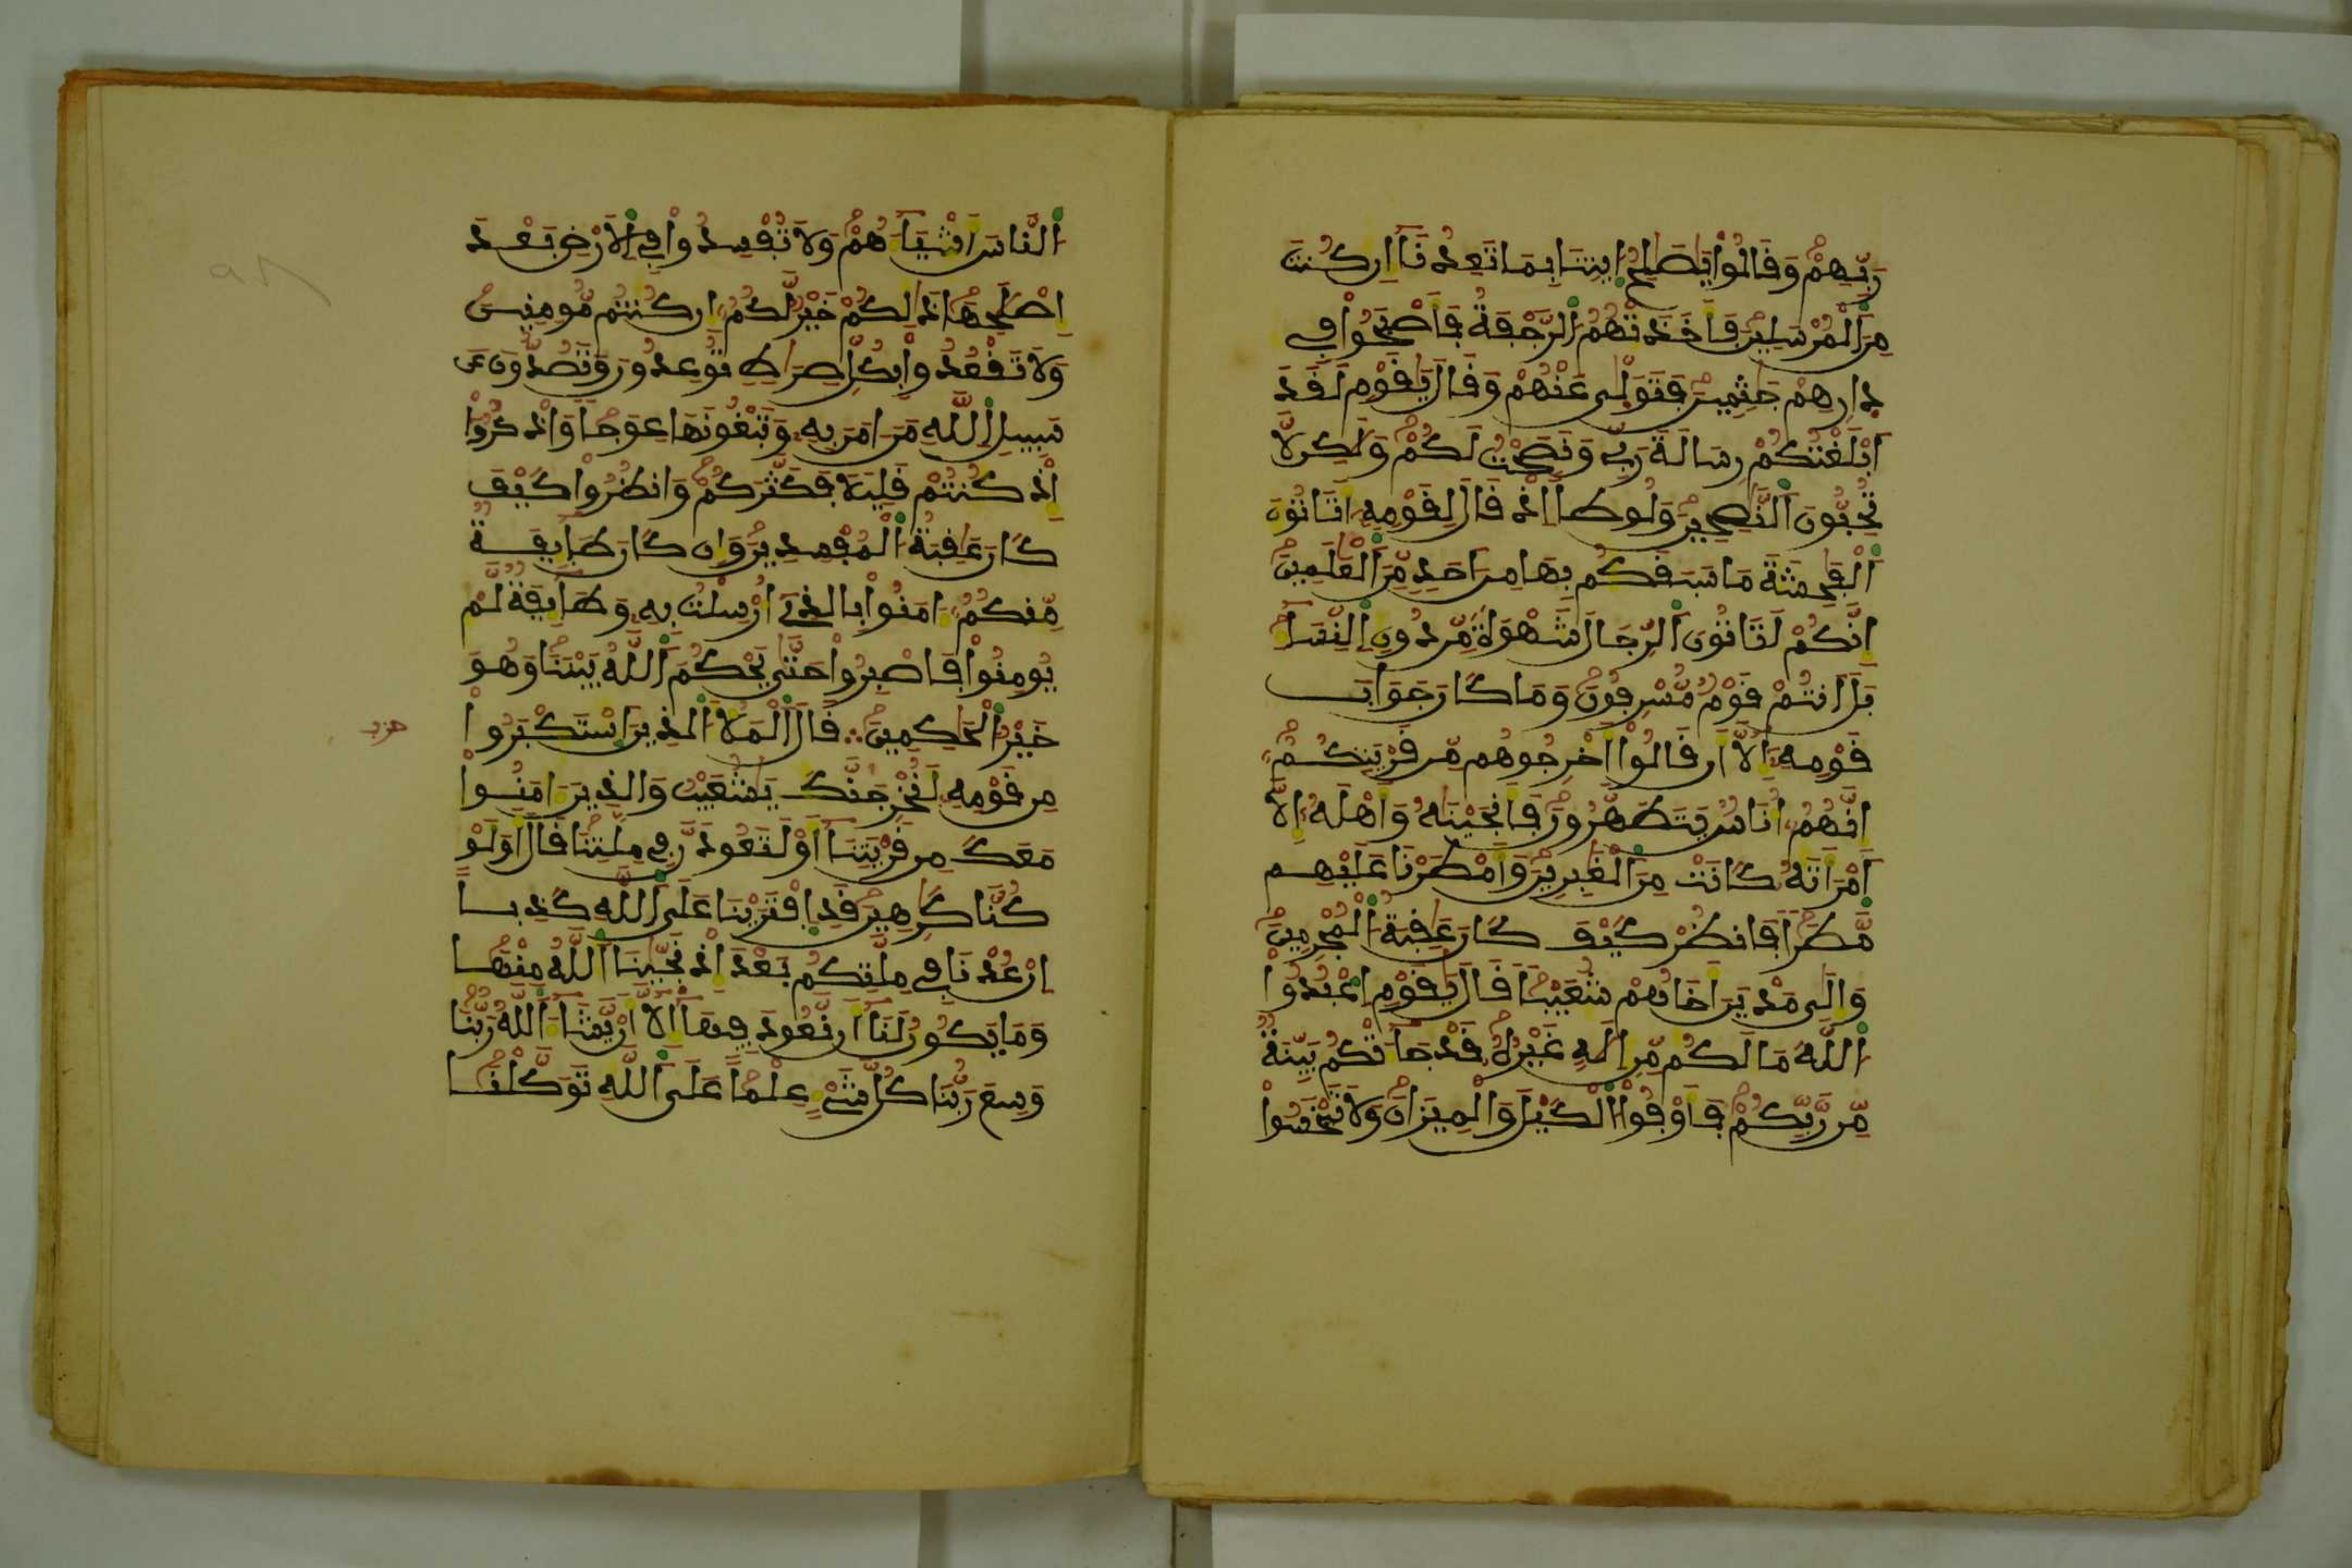 رَبِّهِمْ وَقَالُواْ يَٰصَٰلِحُ ايتِنَا بِمَا تَعِدُنَآ إِن كُنتَ
مِنَ ٱلْمُرْسَلِينَ فَأَخَذَتْهُمُ ٱلرَّجْفَةُ فَأَصْبَحُواْ فِي
دارِهِمْ جَٰثِمِينَ فَتَوَلَّىٰ عَنْهُمْ وَقَالَ يَٰقَوْمِ لَقَدَ
ابْلَغْتُكُمْ رِسَالَةَ رَبِّي وَنَصَحْتُ لَكُمْ وَلَٰكِن لَّا
تُحِبُّونَ ٱلنَّٰصِحِينَ وَلُوطًا اِذْ قَالَ لِقَوْمِهِ أَتَاتُونَ
ٱلْفَٰحِشَةَ مَا سَبَقَكُم بِهَا مِنَ احَدٍ مِّنَ ٱلْعَٰلَمِينَ
إِنَّكُمْ لَتَاتُونَ ٱلرِّجَالَ شَهْوَةً مِّن دُونِ ٱلنِّسَآءِ
بَلَ انتُمْ قَوْمٌ مُّسْرِفُونَ وَمَا كَانَ جَوَابَ
قَوْمِهِ إِلَّآ أَن قَالُوٓاْ أَخْرِجُوهُم مِّن قَرْيَتِكُمُ
إِنَّهُمُ أُنَاسٌ يَتَطَهَّرُونَ فَأَنجَيْنَٰهُ وَأَهْلَهُ إِلَّا
ٱمْرَأَتَهُ كَانَتْ مِنَ ٱلْغَٰبِرِينَ وَأَمْطَرْنَا عَلَيْهِم
مَّطَرًا فَانظُرْ كَيْفَ كَانَ عَٰقِبَةُ ٱلْمُجْرِمِينَ
وَإِلَىٰ مَدْيَنَ أَخَاهُمْ شُعَيْبًا قَالَ يَٰقَوْمِ ٱعْبُدُواْ
ٱللَّهَ مَا لَكُم مِّنِ الَٰهٍ غَيْرُهُ قَدْ جَآءَتْكُم بَيِّنَةٌ
مِّن رَّبِّكُمْ فَأَوْفُواْ ٱلْكَيْلَ وَالْمِيزَانَ وَلَا تَبْخَسُواْ
ٱلنَّاسَ أَشْيَآءَهُمْ وَلَا تُفْسِدُواْ فِي ٱلَارْضِ بَعْدَ
إِصْلَٰحِهَا ذَٰلِكُمْ خَيْرٌ لَّكُمُ إِن كُنتُم مُّومِنِينَ
وَلَا تَقْعُدُواْ بِكُلِّ صِرَٰطٍ تُوعِدُونَ وَتَصُدُّونَ عَن
سَبِيلِ ٱللَّهِ مَنَ امَنَ بِهِ وَتَبْغُونَهَا عِوَجًا وَاذْكُرُوٓاْ
إِذْ كُنتُمْ قَلِيلًا فَكَثَّرَكُمْ وَانظُرُواْ كَيْفَ
كَانَ عَٰقِبَةُ ٱلْمُفْسِدِينَ وَإِن كَانَ طَآئِفَةٌ
مِّنكُمُ ءَامَنُواْ بِالذِي أُرْسِلْتُ بِهِ وَطَآئِفَةٌ لَّمْ
يُومِنُواْ فَاصْبِرُواْ حَتَّىٰ يَحْكُمَ ٱللَّهُ بَيْنَنَا وَهُوَ
خَيْرُ ٱلْحَٰكِمِينَ ∴ قَالَ ٱلْمَلَأُ ٱلذِينَ ٱسْتَكْبَرُواْ
حزب
مِن قَوْمِهِ لَنُخْرِجَنَّكَ يَٰشُعَيْبُ وَالذِينَ ءَامَنُواْ
مَعَكَ مِن قَرْيَتِنَآ أَوْ لَتَعُودُنَّ فِي مِلَّتِنَا قَالَ أَوَلَوْ
كُنَّا كَٰرِهِينَ قَدِ افْتَرَيْنَا عَلَى ٱللَّهِ كَذِبًا
إِنْ عُدْنَا فِي مِلَّتِكُم بَعْدَ إِذْ نَجَّيٰنَا ٱللَّهُ مِنْهَا
وَمَا يَكُونُ لَنَآ أَن نَّعُودَ فِيهَآ إِلَّآ أَنْ يَّشَآءَ ٱللَّهُ رَبُّنَا
وَسِعَ رَبُّنَا كُلَّ شَيْءٍ عِلْمًا عَلَى ٱللَّهِ تَوَكَّلْنَا